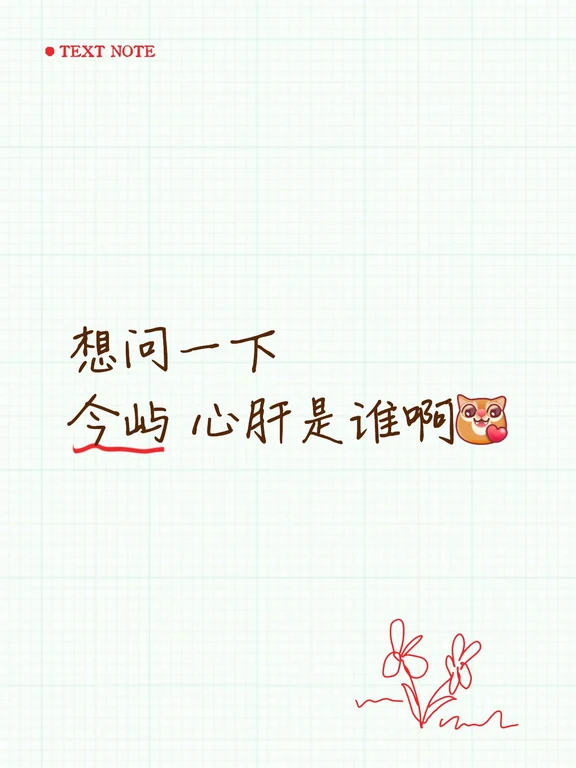 TEXT NOTE
想问一下
今屿 心肝是谁啊